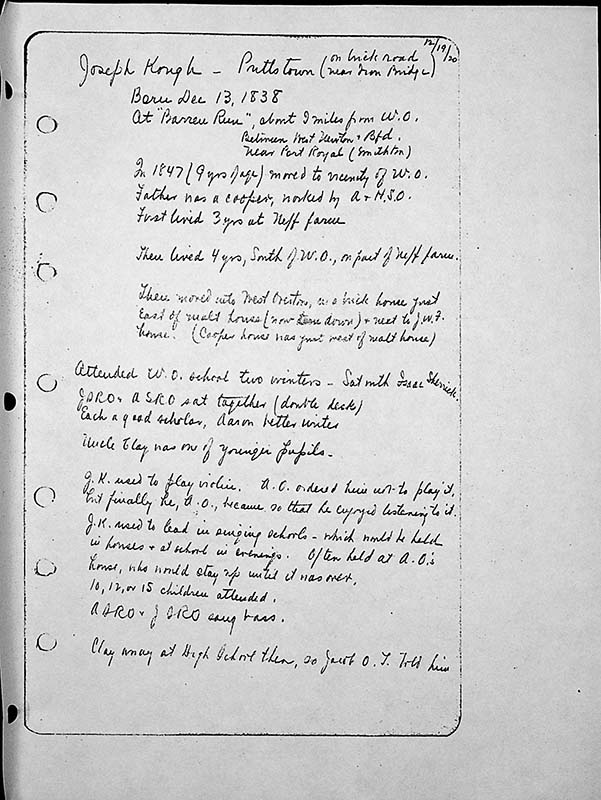 12/19/20
Joseph Hough - Pruttstown (on brick road
near Iron Bridge)
Born Dec 13, 1838
At "Barren Run", about 9 miles from W.O.
Between West Newton & Bfd.
Near Port Royal (Smithton)
In 1847 (9 yrs of age) moved to vicinity of W.O.
Father was a cooper, worked by A & H.S.O.
First lived 3 yrs at Neff farm
Then lived 4 yrs, South of W.O., on part of Neff farm.
Then moved into West Overton, in a brick house just
East of malt house (now torn down) & next to J.W.F.
house. (Cooper house was just west of malt house)
Attended W.O. school two winters - Sat with Isaac Sherrick.
JSRO & ASRO sat together (double desk)
Each a good scholar, Aaron better writer
Uncle Clay was one of younger pupils -
J.K. used to play violin. A.O. ordered him not to play it,
but finally he, A.O., became so that he enjoyed listening to it.
J.K. used to lead in singing schools - which would be held
in houses & at school in evenings. Often held at A.O.'s
house, who would stay up until it was over.
10, 12, or 15 children attended.
ASRO & JSRO sang bass.
Clay away at High School then, so Jacob O. T. told him